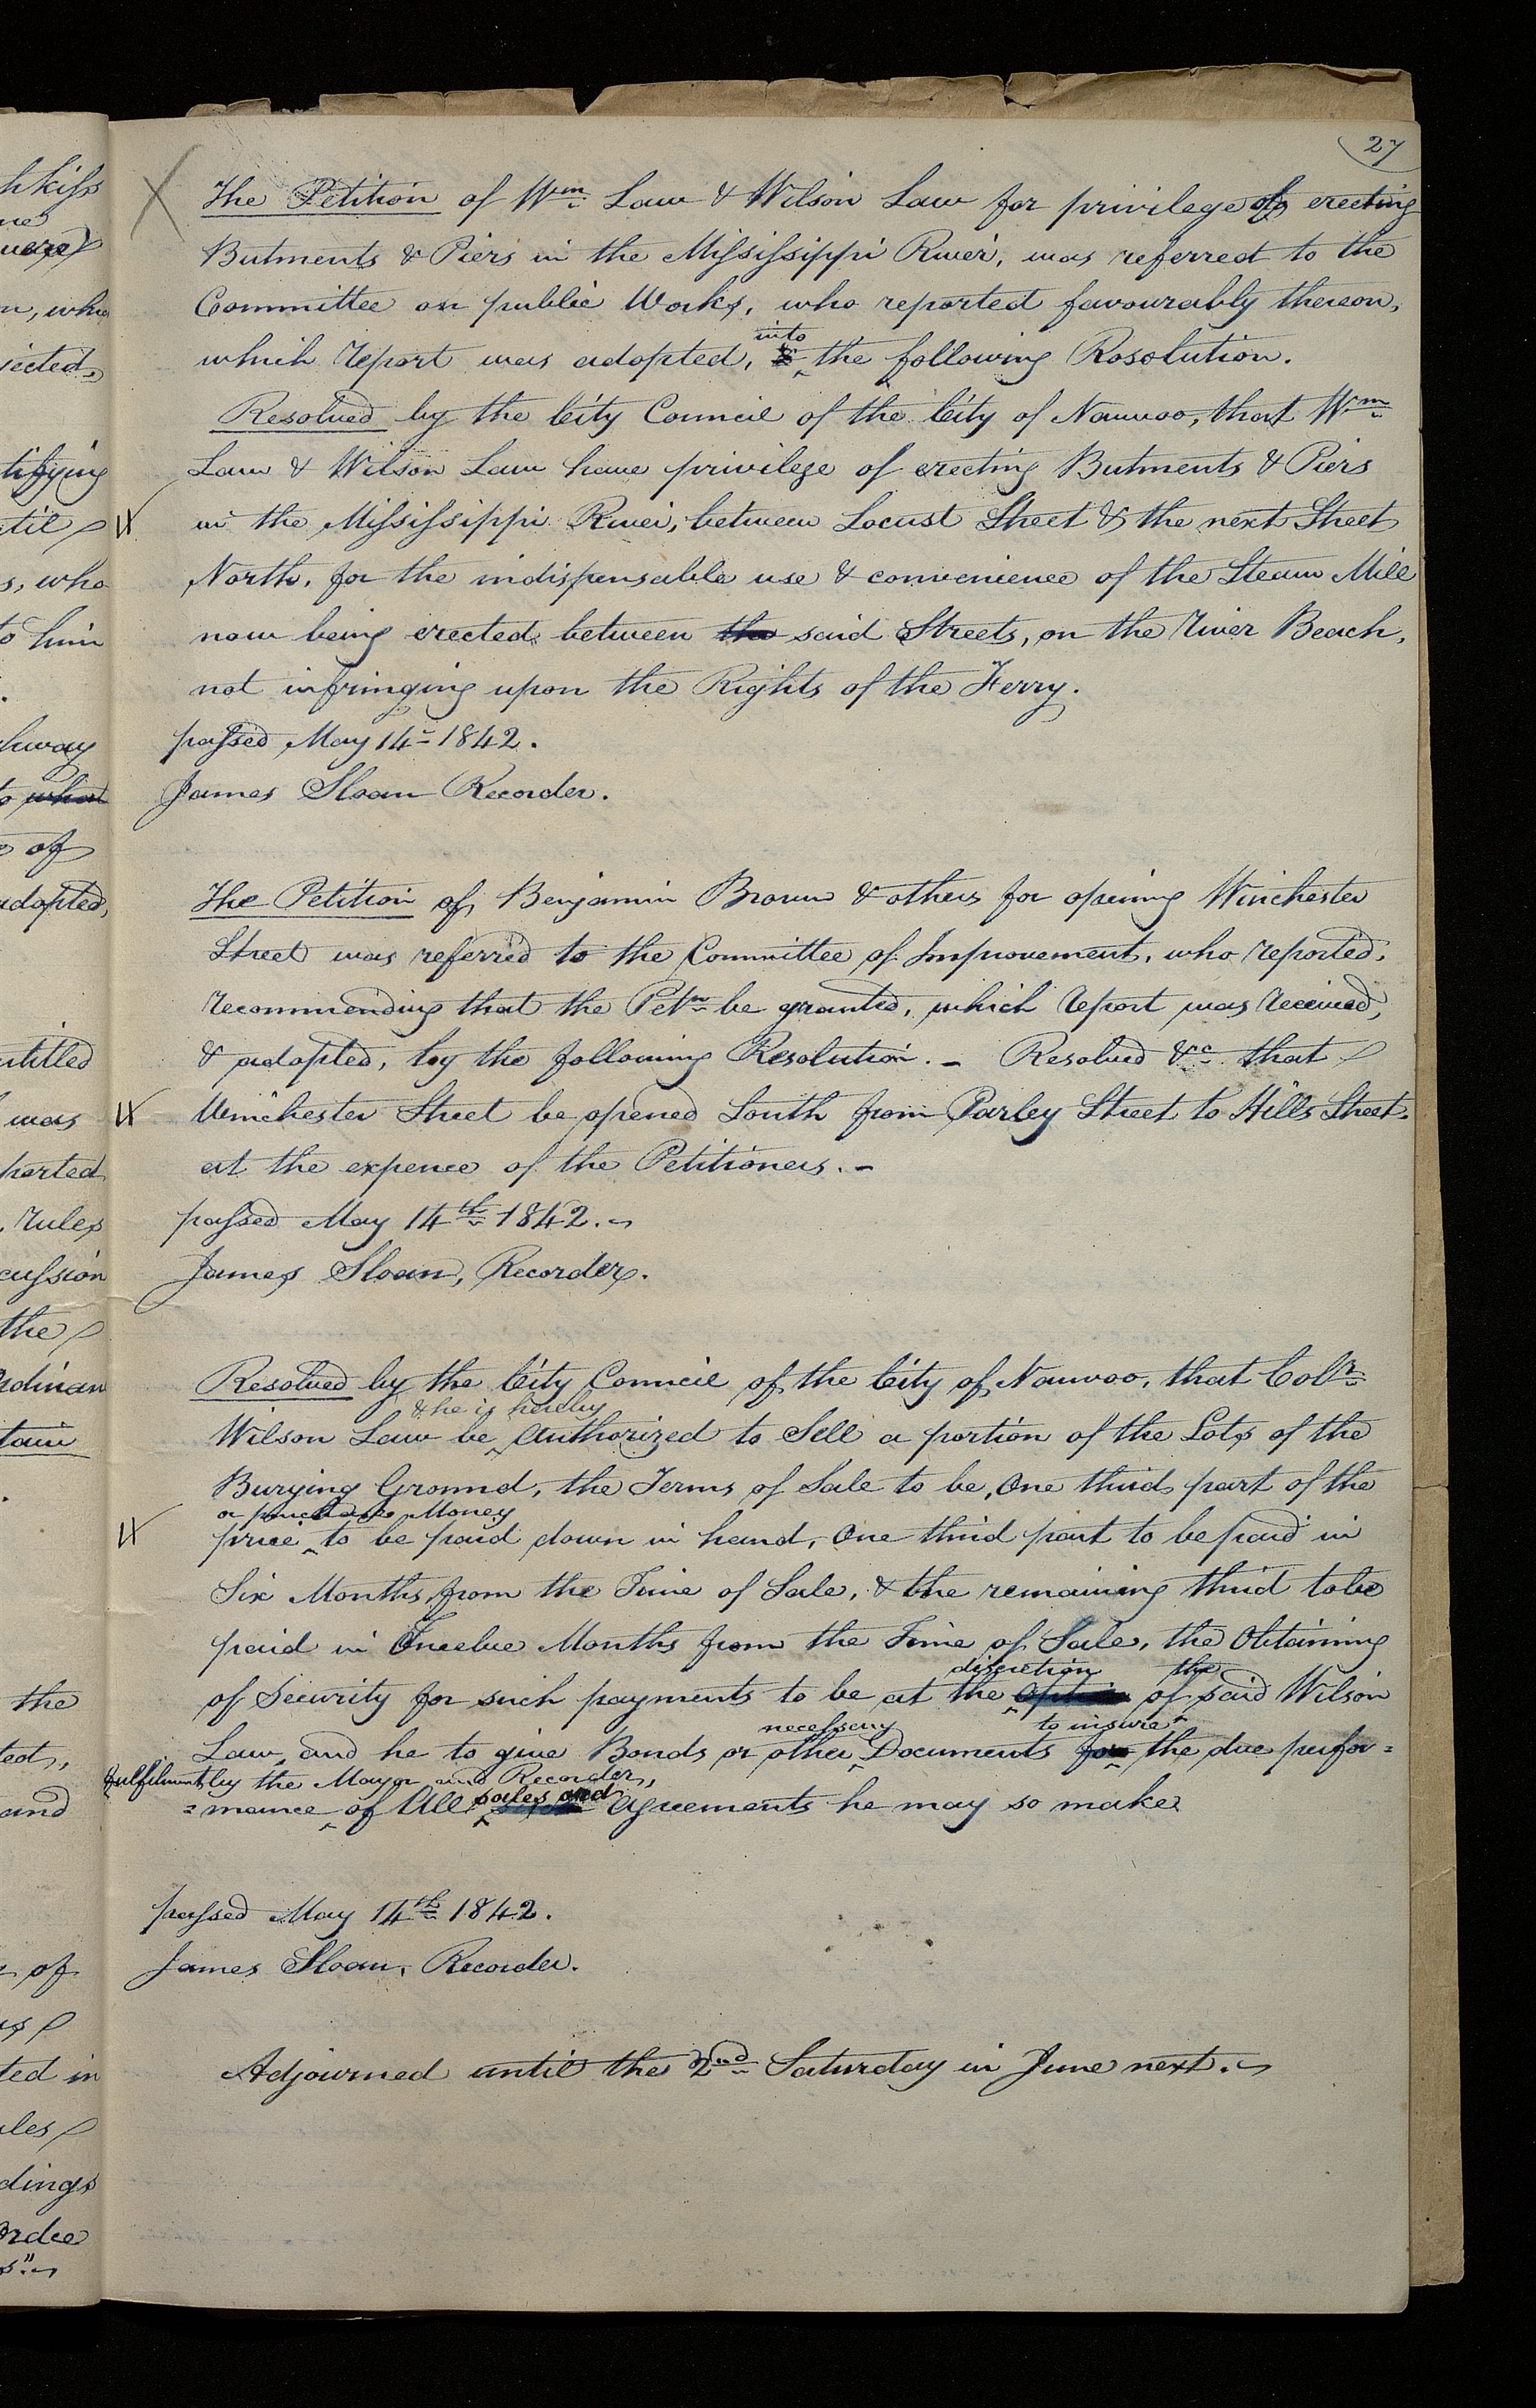 27
The Petition of Wm Law & Wilson Law for privilege of erecting
Butments & Piers in the Mississippi River, was referred to the
Committee on public Works, who reported favourably thereon,
into
which report was adopted, the following Rosolution.
Resolved by the City Council of the City of Nauvoo, that Wm
Law & Wilson Law have privilege of erecting Butments & Piers
in the Mississippi River, between Locust Street & the next Street
North, for the indispensable use & convenience of the Steam Mill
now being erected between the said Streets, on the River Beach,
not infringing upon the Rights of the Ferry.
passed May 14th 1842.
James Sloan Recorder.
The Petition of Benjamin Brown & others for opening Winchester
Street was referred to the Committee of Improvement, who reported,
recommending that the Petn be granted, which report was received,
& adopted, by the following Resolution. — Resolved &c that
Winchester Street be opened South from Parley Street to Hills Street.
at the expence of the Petitioners. —
passed May 14th 1842.
James Sloan, Recorder.
Resolved by the City Council of the City of Nauvoo, that Colr
& he is hereby
Wilson Law be Authorized to Sell a portion of the Lots of the
Burying Ground, the Terms of Sale to be, One third part of the
or purchase Money
price to be paid down in hand, One third part to be paid in
Six Months from the Time of Sale, & the remaining third to be
paid in Twelve Months from the Time of Sale, the Obtaining
discretion the
of Security for such payments to be at the option of said Wilson
necessary to insure
Law, and he to give Bonds or other Documents for the due perfor=
fulfilment by the Mayor and Recorder,
sales and
=mance of All agreements he may so make
passed May 14th 1842.
James Sloan, Recorder.
Adjourned until the 2nd Saturday in June next.
hkiss
n, who
jected,
tifying
til
s, who
to him
hway
to what
of
adopted,
ntitled
was
ported
rules
cussion
the
rdinan
tain
the
ted,
and
of
ted in
ules
dings
Order